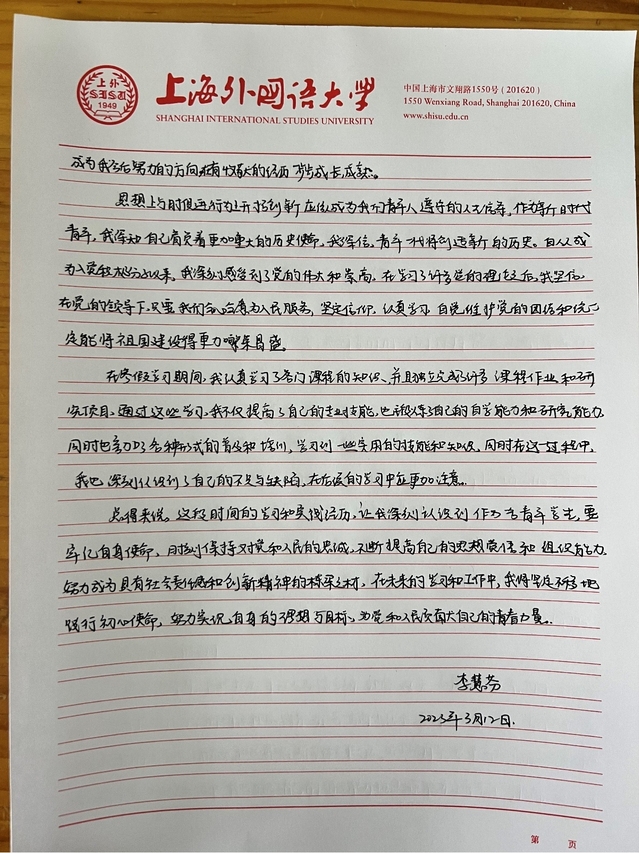 上外
SISU
1949
上海外国语大学
SHANGHAI INTERNATIONAL STUDIES UNIVERSITY
中国上海市文翔路1550号(201620)
1550 Wenxiang Road, Shanghai 201620, China
www.shisu.edu.cn
成为我今后努力的方向 的经历 步步成长成熟。
思想上与时俱进行为上开拓创新应该成为我们青年人遵守的人生信条。作为新时代
青年,我深知自己肩负着更加重大的历史使命,我深信,青年一代将创造新的历史。自从成
为入党积极分子以来,我深刻感受到了党的伟大和崇高。在学习了许多党的理论之后,我坚信
在党的领导下,只要我们 为人民服务,坚定信仰,认真学习,自觉维护党的团结和统一
定能将祖国建设得更加繁荣昌盛。
在寒假学习期间,我认真学习了各门课程的知识、并且独立完成了许多课程作业和研
究项目。通过这些学习,我不仅提高了自己的专业技能,也锻炼了自己的自学能力和研究能力。
同时也参加了各种形式的 和培训,学习到一些实用的技能和知识,同时在这一过程中,
我也深刻认识到了自己的不足与缺陷,在 的学习中应更加注意。
总得来说。这段时间的学习和实践经历,让我深刻认识到作为一名青年学生,要
牢记自身使命,时刻保持对党和人民的忠诚,不断提高自己的思想觉悟和组织能力
努力成为具有社会责任感和创新精神的栋梁之材,在未来的学习和工作中,我将坚定不移地
践行初心使命,努力实现自身的理想与目标,为党和人民贡献自己的青春力量。
李慧芬
2023年3月12日.
第 页